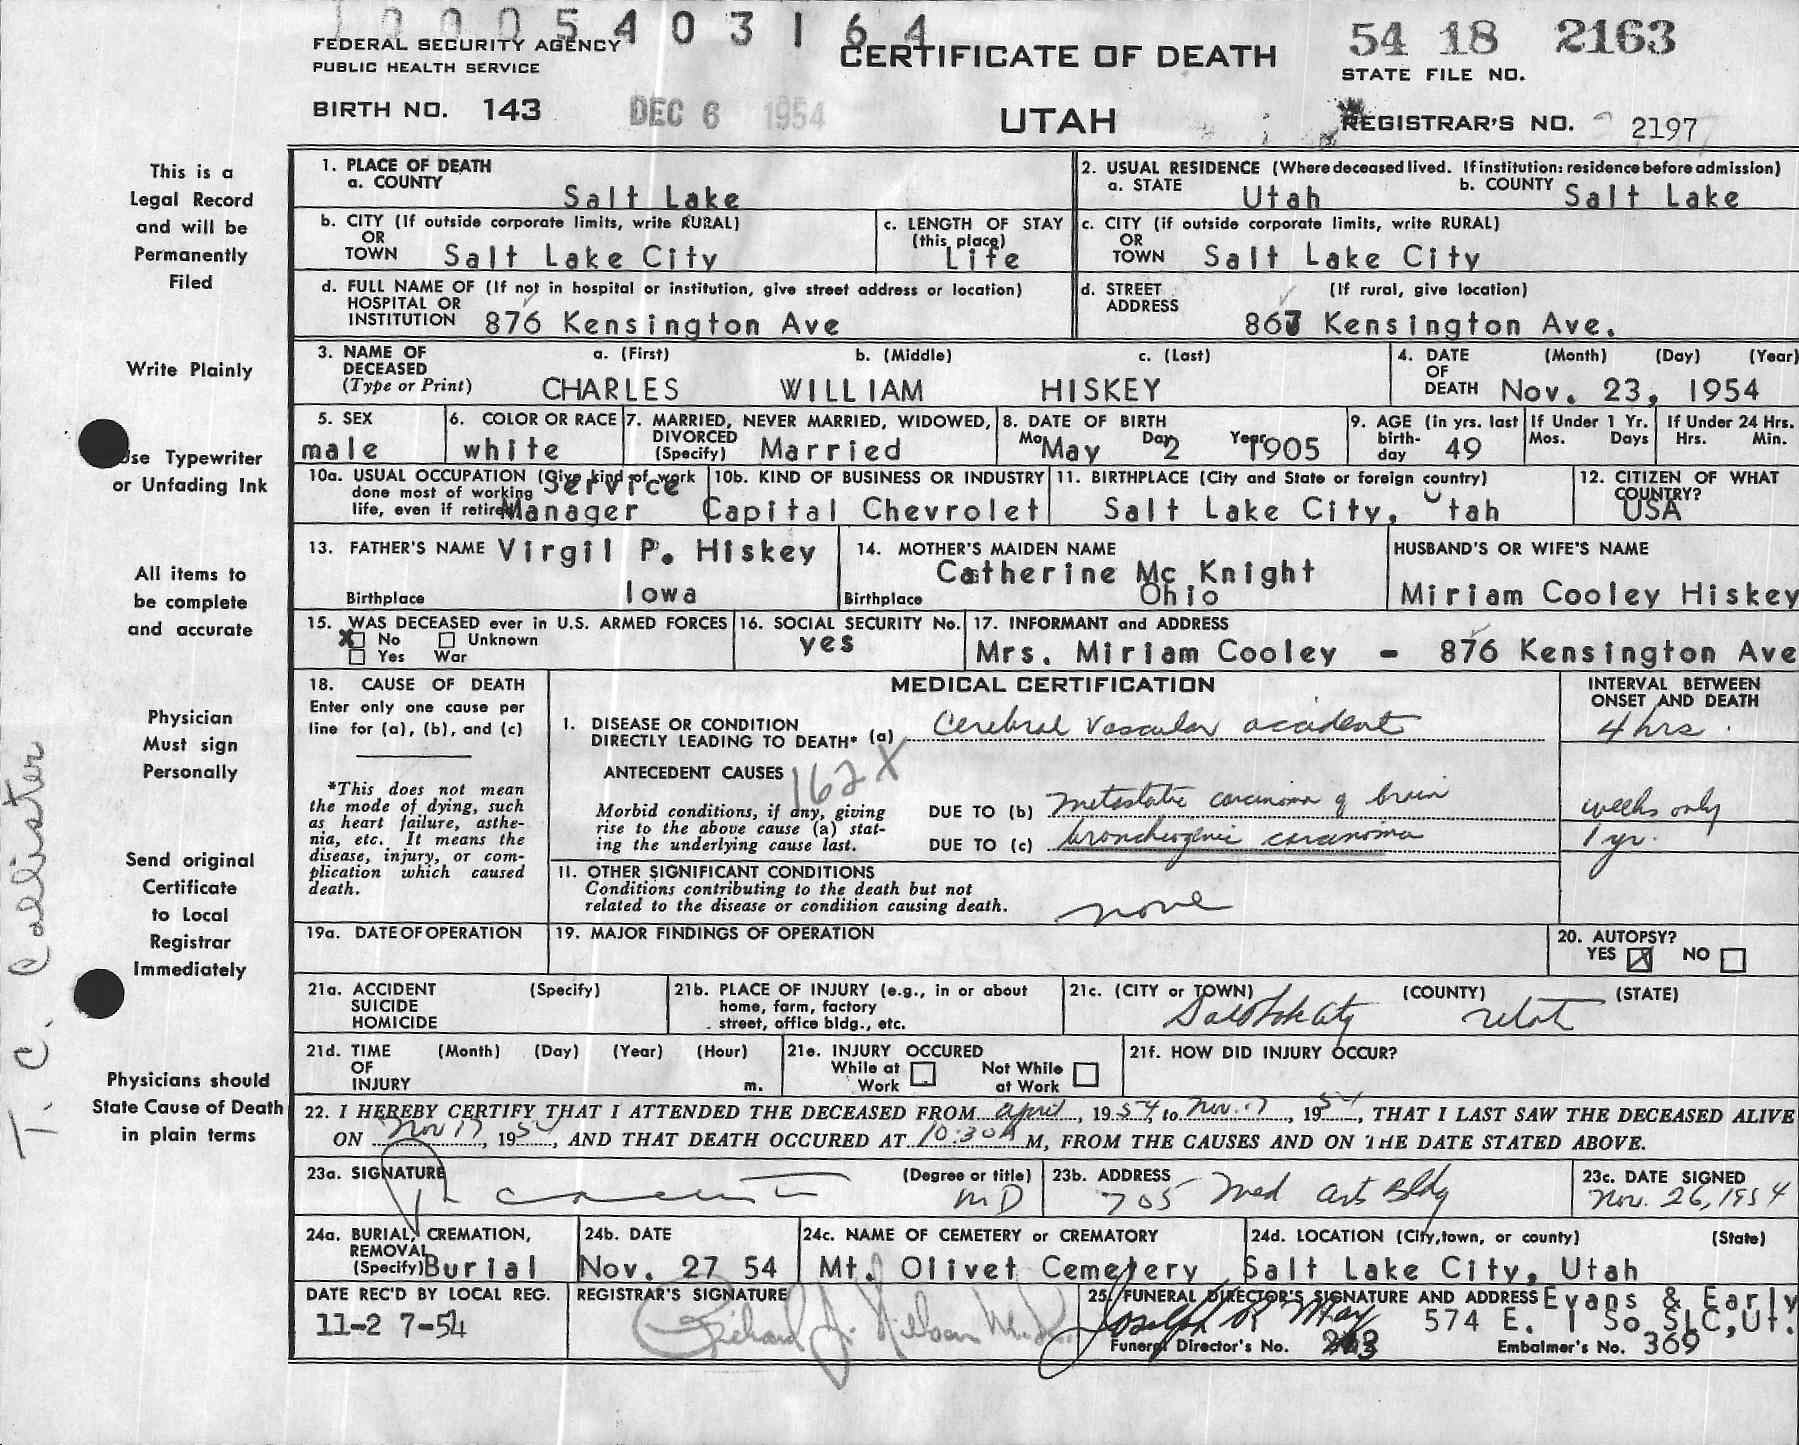 1 0 0 0 5 4 0 3 1 6 4
54 18 2163
FEDERAL SECURITY AGENCY
PUBLIC HEALTH SERVICE
CERTIFICATE OF DEATH
STATE FILE NO.
BIRTH NO. 143
DEC 6 1954
UTAH
REGISTRAR'S NO. 2197
This is a
Legal Record
and will be
Permanently
Filed
Write Plainly
Use Typewriter
or Unfading Ink
All items to
be complete
and accurate
Physician
Must sign
Personally
Send original
Certificate
to Local
Registrar
Immediately
Physicians should
State Cause of Death
in plain terms
T. C. Callister
1. PLACE OF DEATH
a. COUNTY
Salt Lake
2. USUAL RESIDENCE (Where deceased lived. If institution: residence before admission)
a. STATE Utah b. COUNTY Salt Lake
b. CITY (If outside corporate limits, write RURAL)
OR
TOWN Salt Lake City
c. LENGTH OF STAY
(this place)
Life
c. CITY (if outside corporate limits, write RURAL)
OR
TOWN Salt Lake City
d. FULL NAME OF (If not in hospital or institution, give street address or location)
HOSPITAL OR
INSTITUTION 876 Kensington Ave
d. STREET (If rural, give location)
ADDRESS
Kensington Ave.
3. NAME OF a. (First) b. (Middle) c. (Last)
DECEASED
(Type or Print) CHARLES WILLIAM HISKEY
4. DATE (Month) (Day) (Year)
OF
DEATH Nov. 23, 1954
5. SEX
male
6. COLOR OR RACE
white
7. MARRIED, NEVER MARRIED, WIDOWED,
DIVORCED
(Specify) Married
8. DATE OF BIRTH
Mo. May Day 2 Year 1905
9. AGE (in yrs. last
birth-
day 49
If Under 1 Yr.
Mos. Days
If Under 24 Hrs.
Hrs. Min.
10a. USUAL OCCUPATION (Give kind of work
done most of working
life, even if retired
Service
Manager
10b. KIND OF BUSINESS OR INDUSTRY
Capital Chevrolet
11. BIRTHPLACE (City and State or foreign country)
Salt Lake City, Utah
12. CITIZEN OF WHAT
COUNTRY?
USA
13. FATHER'S NAME Virgil P. Hiskey
Birthplace Iowa
14. MOTHER'S MAIDEN NAME
Catherine Mc Knight
Birthplace Ohio
HUSBAND'S OR WIFE'S NAME
Miriam Cooley Hiskey
15. WAS DECEASED ever in U.S. ARMED FORCES
X No Unknown
Yes War
16. SOCIAL SECURITY No.
yes
17. INFORMANT and ADDRESS
Mrs. Miriam Cooley - 876 Kensington Ave
18. CAUSE OF DEATH
Enter only one cause per
line for (a), (b), and (c)
*This does not mean
the mode of dying, such
as heart failure, asthe-
nia, etc. It means the
disease, injury, or com-
plication which caused
death.
MEDICAL CERTIFICATION
INTERVAL BETWEEN
ONSET AND DEATH
1. DISEASE OR CONDITION
DIRECTLY LEADING TO DEATH* (a) Cerebral vascular accident
4 hrs.
ANTECEDENT CAUSES 162X
Morbid conditions, if any, giving
rise to the above cause (a) stat-
ing the underlying cause last.
DUE TO (b) metastatic carcinoma of brain
weeks only
DUE TO (c) bronchogenic carcinoma
1 yr.
11. OTHER SIGNIFICANT CONDITIONS
Conditions contributing to the death but not
related to the disease or condition causing death.
none
19a. DATE OF OPERATION
19. MAJOR FINDINGS OF OPERATION
20. AUTOPSY?
YES X NO
21a. ACCIDENT (Specify)
SUICIDE
HOMICIDE
21b. PLACE OF INJURY (e.g., in or about
home, farm, factory
street, office bldg., etc.
21c. (CITY or TOWN) (COUNTY) (STATE)
Salt Lake City Utah
21d. TIME (Month) (Day) (Year) (Hour)
OF
INJURY m.
21e. INJURY OCCURED
While at Not While
Work at Work
21f. HOW DID INJURY OCCUR?
22. I HEREBY CERTIFY THAT I ATTENDED THE DECEASED FROM April, 1954, to Nov. 17, 1954, THAT I LAST SAW THE DECEASED ALIVE
ON Nov 17, 1954, AND THAT DEATH OCCURED AT 10:30 A M, FROM THE CAUSES AND ON THE DATE STATED ABOVE.
23a. SIGNATURE (Degree or title)
MD
23b. ADDRESS
705 Med Arts Bldg
23c. DATE SIGNED
Nov. 26, 1954
24a. BURIAL, CREMATION,
REMOVAL
(Specify) Burial
24b. DATE
Nov. 27 54
24c. NAME OF CEMETERY or CREMATORY
Mt. Olivet Cemetery
24d. LOCATION (City, town, or county) (State)
Salt Lake City, Utah
DATE REC'D BY LOCAL REG.
11-2 7-54
REGISTRAR'S SIGNATURE
Richard J. Nelson M.D.
25. FUNERAL DIRECTOR'S SIGNATURE AND ADDRESS Evans & Early
Joseph R May 574 E. 1 So SLC, Ut.
Funeral Director's No. Embalmer's No. 369